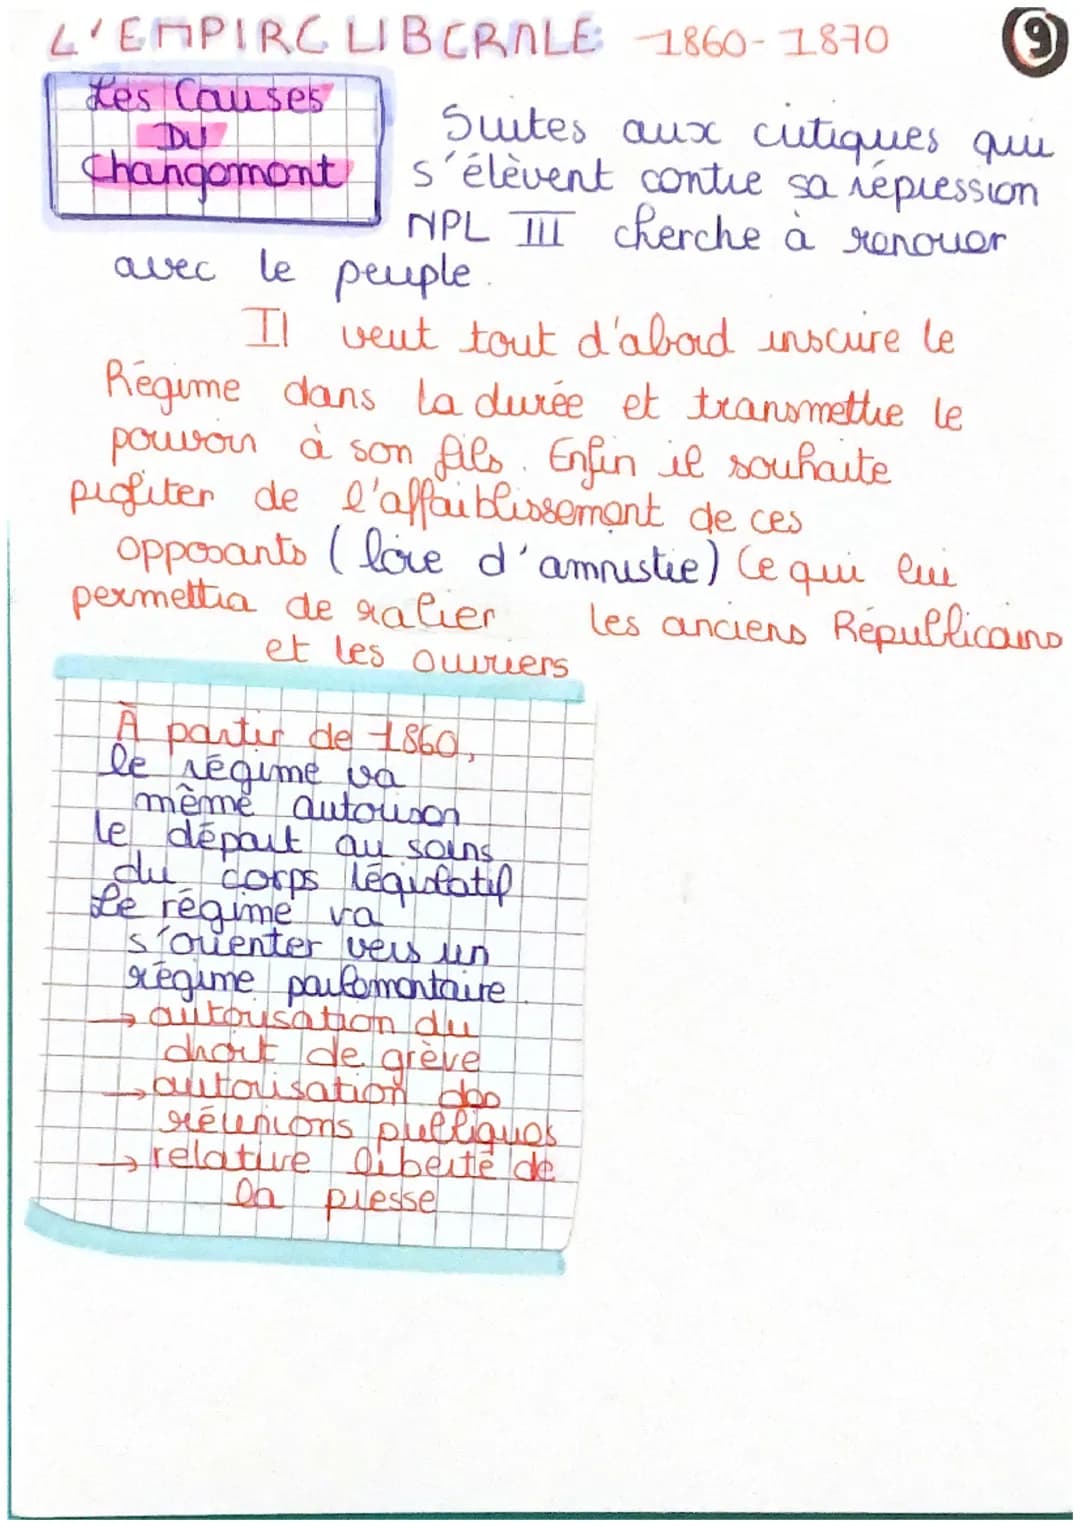 L'EMPIRE LIBERALE 1860-1870
9
Les Causes
DU
Changement
Suites aux critiques qui
s'élèvent contre sa répression
NPL III cherche à renouer
avec le peuple.
Il veut tout d'abord inscrire le
Régime dans la durée et transmettre le
pouvoir à son fils. Enfin il souhaite
profiter de l'affaiblissement de ces
opposants (loire d'amnistie) Ce qui lui
permettra de ralier les anciens Républicains
et les ouvriers
À partir de 1860,
le régime va
même autoriser
le départ au soins
du corps législatif
Le régime va
s'orienter vers un
régime parlementaire.
→ autorisation du
droit de grève
→ autorisation des
réunions publiques
→ relative liberté de
la presse